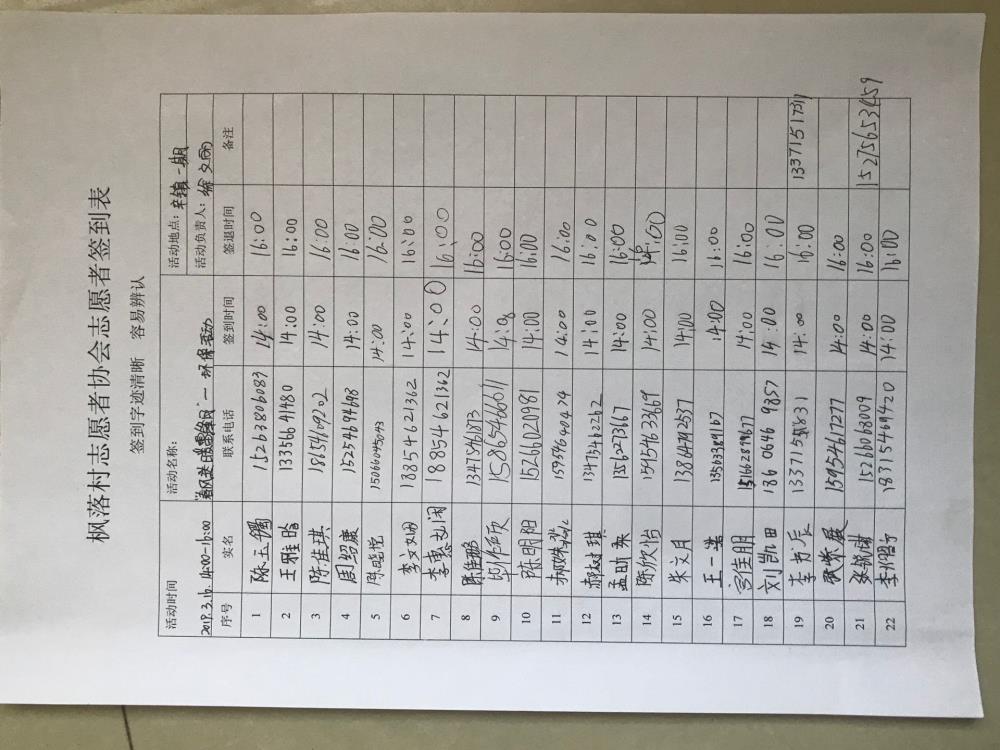 枫落村志愿者协会志愿者签到表
签到字迹清晰 容易辨认
活动时间 活动名称： 活动地点：辛镇一期
2019.3.16. 14:00-16:00 一环保活动 活动负责人：徐文
序号 实名 联系电话 签到时间 签退时间 备注
1 陈玉镯 15263806087 14:00 16:00
2 王雅晗 13356641480 14:00 16:00
3 陈佳琪 18154609202 14:00 16:00
4 周绍康 15254694698 14:00 16:00
5 陈晓莹 15066045043 14:00 16:00
6 李文如 18854621362 14:00 16:00
7 李惠 18854621362 14:00 16:00
8 陈佳鹏 14:00 16:00
9 毕作欣 15854666011 14:00 16:00
10 陈明阳 15266020981 14:00 16:00
11 郝姝 15936440424 14:00 16:00
12 郝树琪 13475462262 14:00 16:00
13 孟昕奕 13562273667 14:00 16:00
14 陈欣怡 154154633669 14:00 16:00
15 朱文月 13864742537 14:00 16:00
16 王一诺 13503389167 14:00 16:00
17 宫佳朋 15166289677 14:00 16:00
18 刘凯田 186 0646 9857 14:00 16:00
19 李书辰 14:00 16:00
20 15954617277 14:00 16:00
21 15260068009 14:00 16:00 15275653259
22 18715469420 14:00 16:00